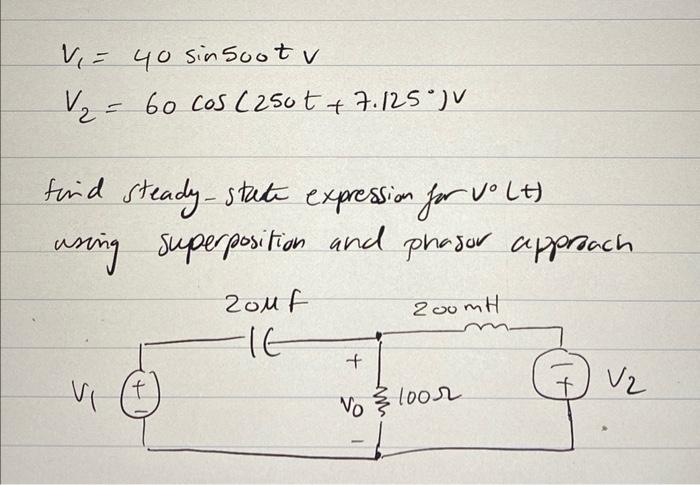 V₁ = 40 sin500t V
V₂ = 60 cos (250t + 7.125°) V
find steady-state expression for V° (t)
using superposition and phasor approach
20uf
200mH
V₁
+
-
+
V₀
-
100Ω
-
+
V₂